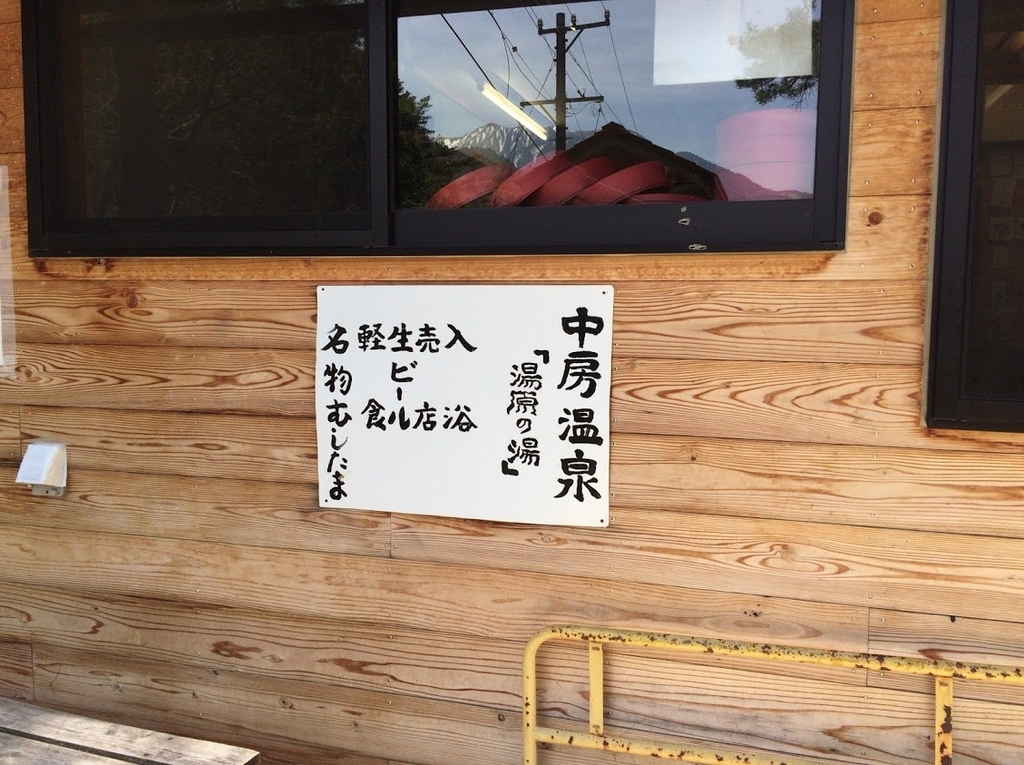 中房温泉
「湯原の湯」
入浴
売店
生ビール
軽食
名物むしたま